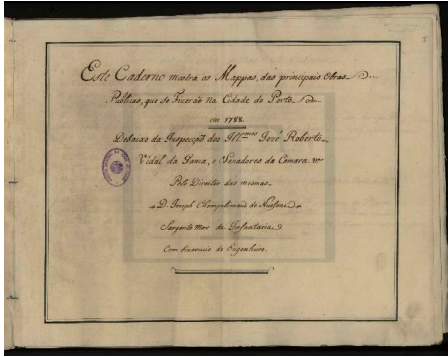 Este Caderno mostra os Mappas, das principais Obras
Publicas, que se Fizerão na Cidade do Porto
em 1788.
Debaxo da Inspecção dos Ill.mos José Roberto
Vidal da Gama, e Senadores da Camara.
Pelo Director das mesmas
D. Joseph Champalimaud de Nussane
Sargento Mor de Infantaria
Com Exercicio de Engenheiro.